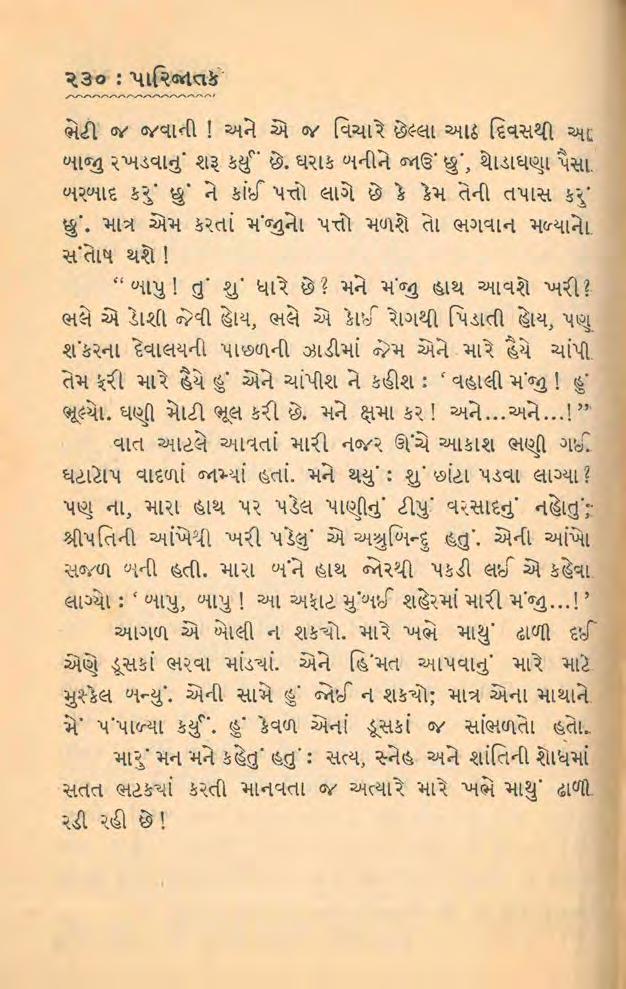 ૨૩૦ : પારિજાતક
ભેટી જ જવાની ! અને એ જ વિચારે છેલ્લા આઠ દિવસથી આ
બાજુ રખડવાનું શરૂ કર્યું છે. ઘરાક બનીને જાઉં છું, થોડાઘણા પૈસા
બરબાદ કરું છું ને કાંઈ પત્તો લાગે છે કે કેમ તેની તપાસ કરું
છું. માત્ર એમ કરતાં મંજુનો પત્તો મળશે તો ભગવાન મળ્યાનો
સંતોષ થશે !
“ બાપુ ! તું શું ધારે છે ? મને મંજુ હાથ આવશે ખરી ?
ભલે એ ડોશી જેવી હોય, ભલે એ કોઈ રોગથી પિડાતી હોય, પણ
શંકરના દેવાલયની પાછળની ઝાડીમાં જેમ એને મારે હૈયે ચાંપી
તેમ ફરી મારે હૈયે હું એને ચાંપીશ ને કહીશ : ‘ વહાલી મંજુ ! હું
ભૂલ્યો. ઘણી મોટી ભૂલ કરી છે. મને ક્ષમા કર ! અને...અને...! ”
વાત આટલે આવતાં મારી નજર ઊંચે આકાશ ભણી ગઈ.
ઘટાટોપ વાદળાં જામ્યાં હતાં. મને થયું : શું છાંટા પડવા લાગ્યા ?
પણ ના, મારા હાથ પર પડેલ પાણીનું ટીપું વરસાદનું નહોતું;
શ્રીપતિની આંખેથી ખરી પડેલું એ અશ્રુબિન્દુ હતું. એની આંખો
સજળ બની હતી. મારા બંને હાથ જોરથી પકડી લઈ એ કહેવા
લાગ્યો : ‘ બાપુ, બાપુ ! આ અફાટ મુંબઈ શહેરમાં મારી મંજુ...! ’
આગળ એ બોલી ન શક્યો. મારે ખભે માથું ઢાળી દઈ
એણે ડૂસકાં ભરવા માંડ્યાં. એને હિંમત આપવાનું મારે માટે
મુશ્કેલ બન્યું. એની સામે હું જોઈ ન શક્યો; માત્ર એના માથાને
મેં પંપાળ્યા કર્યું. હું કેવળ એનાં ડૂસકાં જ સાંભળતો હતો.
મારું મન મને કહેતું હતું : સત્ય, સ્નેહ અને શાંતિની શોધમાં
સતત ભટક્યાં કરતી માનવતા જ અત્યારે મારે ખભે માથું ઢાળી
રડી રહી છે !